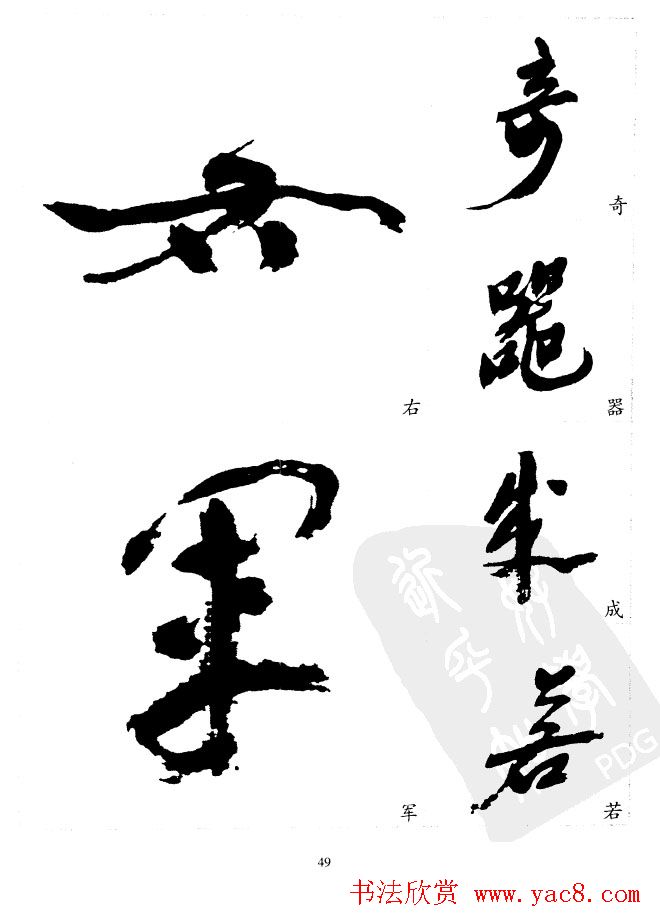 奇
器
成
若
右
军
49
书法欣赏 www.yac8.com
PDG